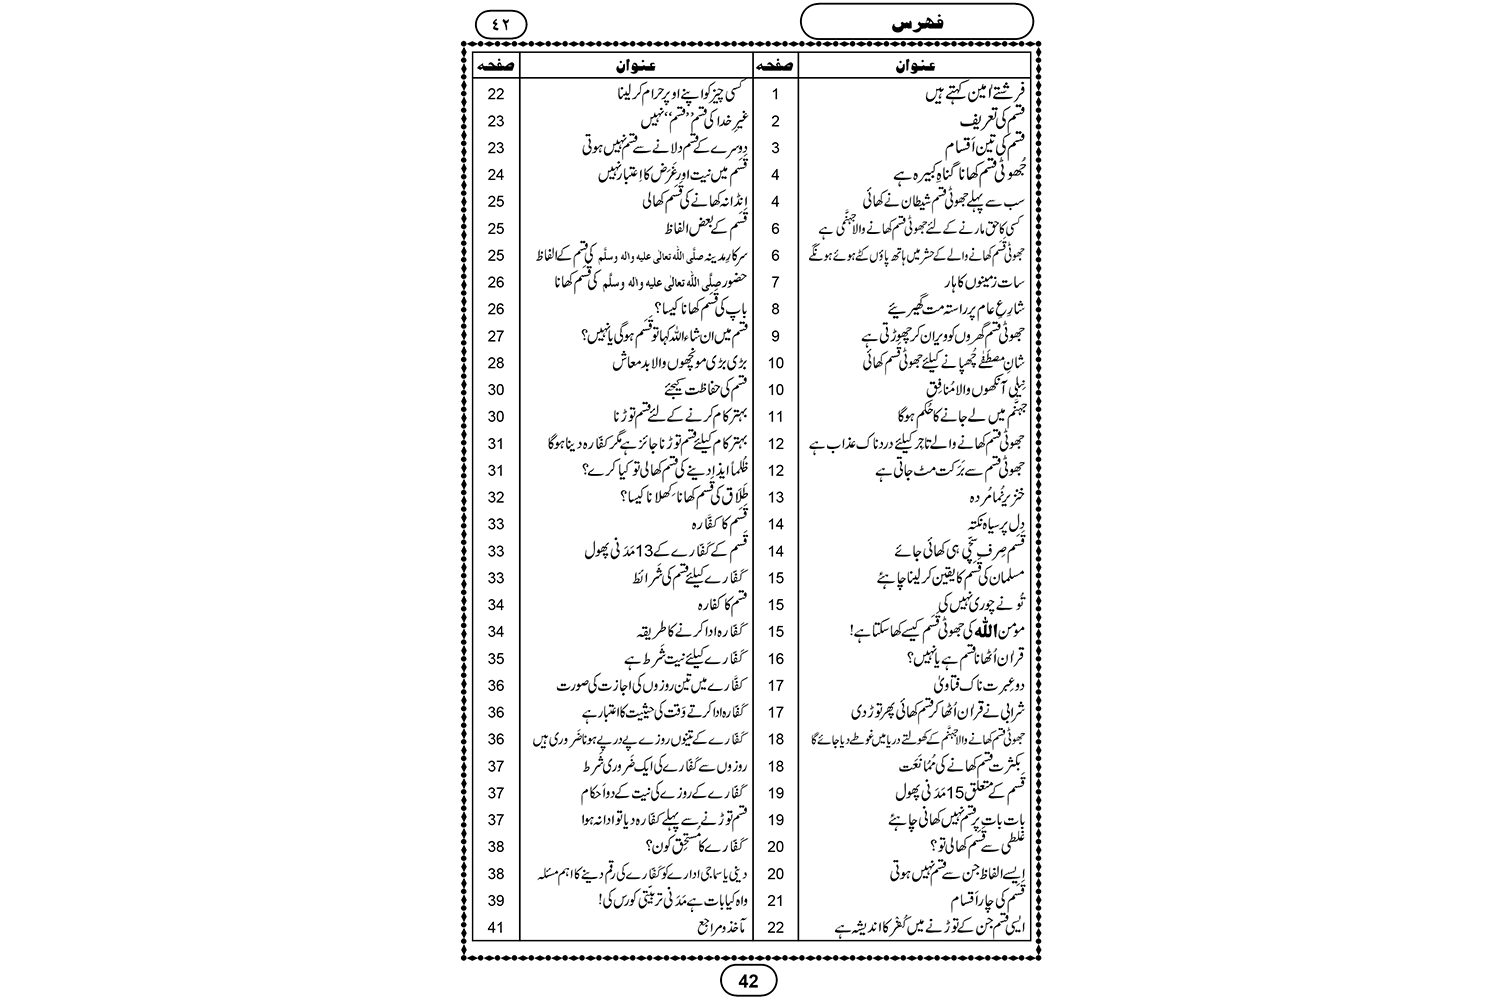 فہرس
٤٢
عنوان صفحہ عنوان صفحہ
فرشتے امین کہتے ہیں 1 کسی چیز کو اپنے اوپر حرام کر لینا 22
قسم کی تعریف 2 غیرِ خدا کی قسم ’’قسم‘‘ نہیں 23
قسم کی تین اَقسام 3 دوسرے کے قسم دلانے سے قسم نہیں ہوتی 23
جُھوٹی قسم کھانا گناہِ کبیرہ ہے 4 قَسَم میں نیت اور غَرَض کا اِعتبار نہیں 24
سب سے پہلے جھوٹی قسم شیطان نے کھائی 4 انڈا نہ کھانے کی قَسَم کھالی 25
کسی کا حق مارنے کے لئے جھوٹی قسم کھانے والا جہنَّمی ہے 6 قَسَم کے بعض الفاظ 25
جھوٹی قَسَم کھانے والے کے حشر میں ہاتھ پاؤں کٹے ہوئے ہونگے 6 سرکارِ مدینہ صلَّی اللہ تعالٰی علیہ والہ وسلَّم کی قَسَم کے الفاظ 25
سات زمینوں کا ہار 7 حضور صلَّی اللہ تعالٰی علیہ والہ وسلَّم کی قَسَم کھانا 26
شارِعِ عام پر راستہ مت گھیریئے 8 باپ کی قَسَم کھانا کیسا؟ 26
جھوٹی قَسَم گھروں کو ویران کر چھوڑتی ہے 9 قسم میں ان شاءَ اللہ کہا تو قَسَم ہوگی یا نہیں؟ 27
شانِ مصطَفٰے چُھپانے کیلئے جھوٹی قَسَم کھائی 10 بڑی بڑی مونچھوں والا بدمعاش 28
نیلی آنکھوں والا مُنافِق 10 قسم کی حفاظت کیجئے 30
جہنَّم میں لے جانے کا حُکم ہوگا 11 بہتر کام کرنے کے لئے قسم توڑنا 30
جھوٹی قسم کھانے والے تاجر کیلئے دردناک عذاب ہے 12 بہتر کام کیلئے قسم توڑنا جائز ہے مگر کفّارہ دینا ہوگا 31
جھوٹی قسم سے بَرَکت مٹ جاتی ہے 12 ظُلماً ایذا دینے کی قسم کھالی تو کیا کرے؟ 31
خنزیر نُما مُردہ 13 طَلَاق کی قسم کھانا کِھلانا کیسا؟ 32
دِل پر سیاہ نکتہ 14 قَسَم کا کفّارہ 33
قَسَم صِرف سچّی ہی کھائی جائے 14 قَسَم کے کَفّارے کے 13 مَدَنی پھول 33
مسلمان کی قَسَم کا یقین کر لینا چاہئے 15 کَفّارے کیلئے قسم کی شَرائط 33
تُو نے چوری نہیں کی 15 قسم کا کفارہ 34
مومن اللہ کی جھوٹی قَسَم کیسے کھا سکتا ہے! 15 کَفّارہ ادا کرنے کا طریقہ 34
قران اُٹھانا قسم ہے یا نہیں؟ 16 کَفّارے کیلئے نیت شَرط ہے 35
دو عِبرت ناک فتاویٰ 17 کفّارے میں تین روزوں کی اجازت کی صورت 36
شرابی نے قران اُٹھا کر قسم کھائی پھر توڑ دی 17 کَفّارہ ادا کرتے وَقت کی حیثیت کا اعتبار ہے 36
جھوٹی قسم کھانے والا جہنَّم کے کھولتے دریا میں غوطے دیا جائے گا 18 کَفّارے کے تینوں روزے پے در پے ہونا ضَروری ہیں 36
بکثرت قسم کھانے کی مُمَانَعَت 18 روزوں سے کَفّارے کی ایک ضَروری شَرط 37
قَسَم کے متعلق 15 مَدَنی پھول 19 کَفّارے کے روزے کی نیت کے دو اَحکام 37
بات بات پر قسم نہیں کھانی چاہئے 19 قسم توڑنے سے پہلے کفّارہ دیا تو ادا نہ ہوا 37
غَلطی سے قَسَم کھالی تو؟ 20 کَفّارے کا مُستحق کون؟ 38
اِیسے الفاظ جن سے قسم نہیں ہوتی 20 دینی یا سماجی ادارے کو کَفّارے کی رقم دینے کا اہم مسئلہ 38
قَسَم کی چار اَقسام 21 واہ کیا بات ہے مَدَنی تربیتی کورس کی! 39
ایسی قسم جن کے توڑنے میں کُفر کا اندیشہ ہے 22 مآخذ و مراجع 41
42